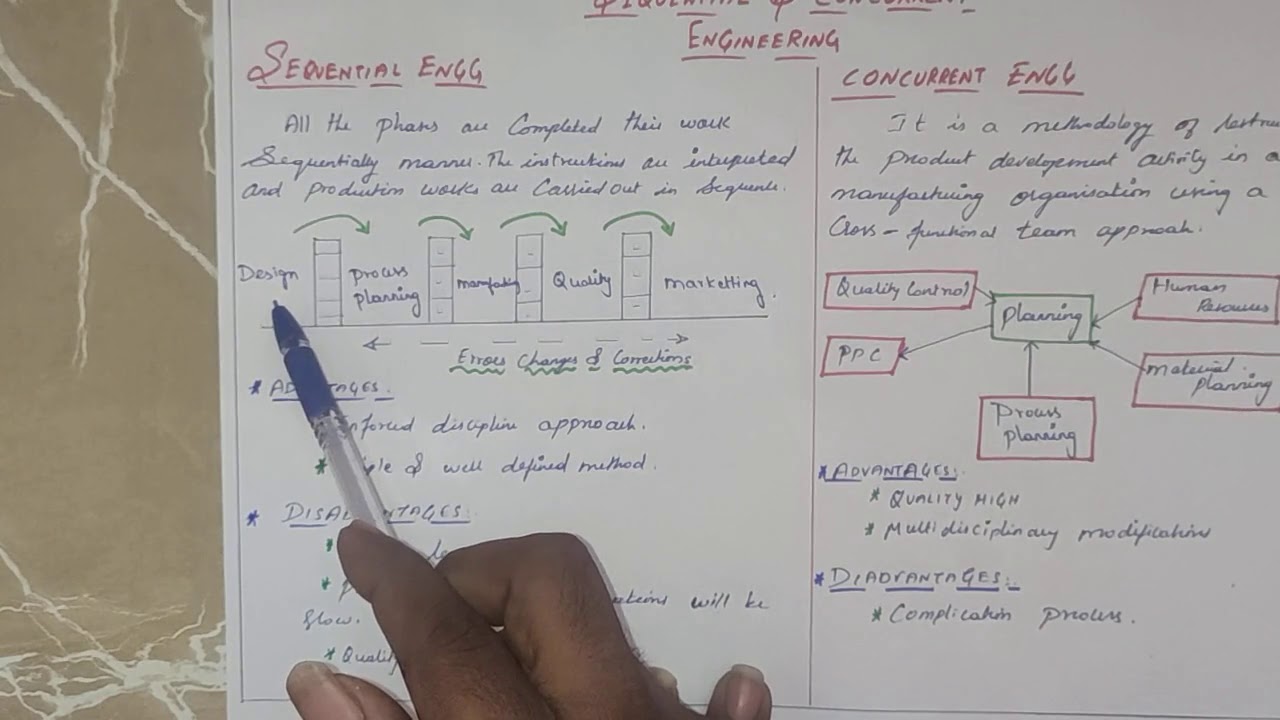 SEQUENTIAL & CONCURRENT
ENGINEERING
SEQUENTIAL ENGG
All the phases are Completed their work
Sequentially manner. The instructions are interpreted
and production works are Carried out in Sequence.
Design
Process
planning
manufacturing
Quality
marketting.
Errors Changes & Corrections
* ADVANTAGES.
Enforced discipline approach.
* & well defined method.
* DISADVANTAGES:
will be
slow.
* Quality
CONCURRENT ENGG
It is a methodology of
the product development activity in a
manufacturing organisation using a
Cross - functional team approach.
Quality Control
PPC
Planning
Human
Resources
Material
planning
Process
planning
* ADVANTAGES:
* QUALITY HIGH
* Multidisciplinary modifications
* DIADVANTAGES:
* Complication process.